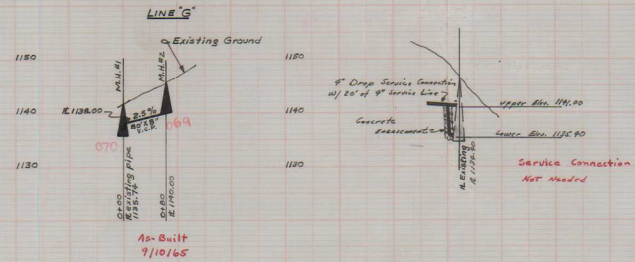 LINE "G"
Existing Ground
1150
M.H.#1
M.H.#2
1140
1130
℄ 1138.00
2.5%
80'X8"
V.C.P.
070
069
0+00
℄ existing pipe
1135.74
0+80
℄ 1140.00
As-Built
9/10/65
1150
1140
1130
4" Drop Service Connection
W/ 20' of 4" Service Line
Concrete
Encasement
Upper Elev. 1141.00
Lower Elev. 1135.40
℄ Existing
℄ 1134.40
Service Connection
Not Needed